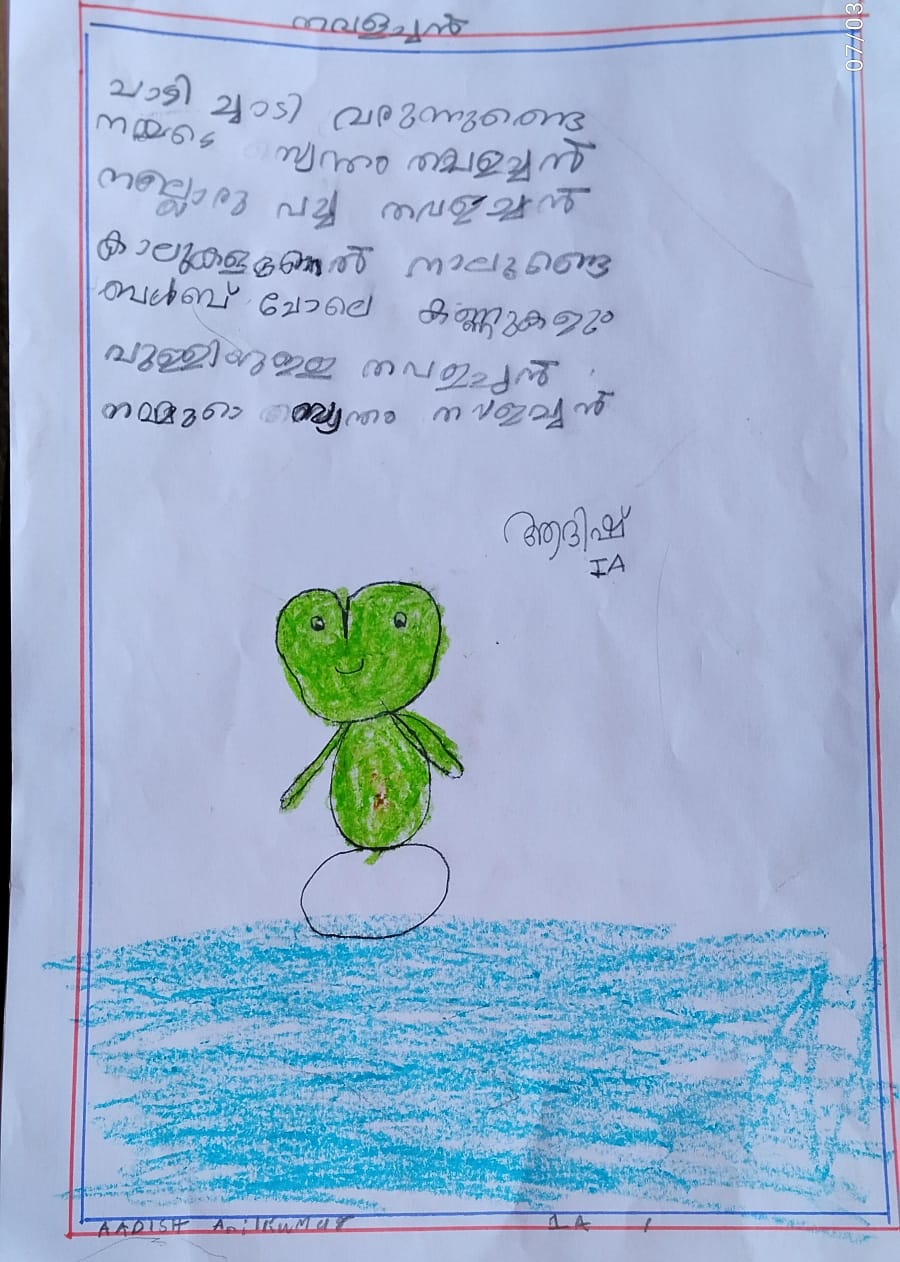 തവളച്ചൻ
07/03
ചാടി ച്ചാടി വരുന്നുണ്ടെ
നമ്മുടെ സ്വന്തം തവളച്ചൻ
നല്ലൊരു പച്ച തവളച്ചൻ
കാലുകളുണ്ടേൽ നാലുണ്ടെ
ബൾബ് പോലെ കണ്ണുകളും
പുള്ളിയുള്ള തവളച്ചൻ
നമ്മുടെ സ്വന്തം തവളച്ചൻ
ആദിഷ്
IA
AADISH AnilKuMar 1A